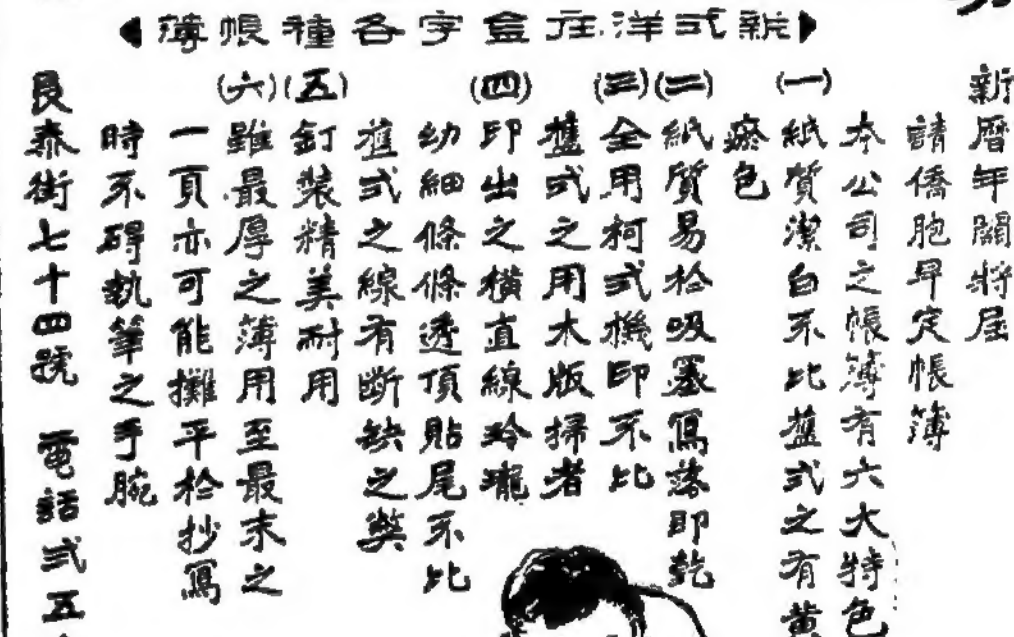 新式洋庄盒字各種帳簿
新曆年關將屆
請僑胞早定帳簿
本公司之帳簿有六大特色
(一)紙質潔白不比舊式之有黄
瘀色
(二)紙質易於吸墨寫落即乾
(三)全用柯式機印不比
舊式之用木版掃者
(四)印出之橫直線玲瓏
幼細條條透頂貼尾不比
舊式之線有斷缺之獘
(五)釘裝精美耐用
(六)雖最厚之簿用至最末之
一頁亦可能攤平於抄寫
時不碍執筆之手腕
良泰街七十四號 電話弍五